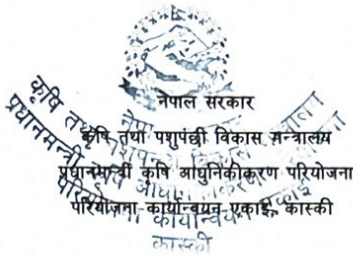 नेपाल सरकार
कृषि तथा पशुपंछी विकास मन्त्रालय
प्रधानमन्त्री कृषि आधुनिकीकरण परियोजना
परियोजना कार्यान्वयन एकाई, कास्की
कास्की